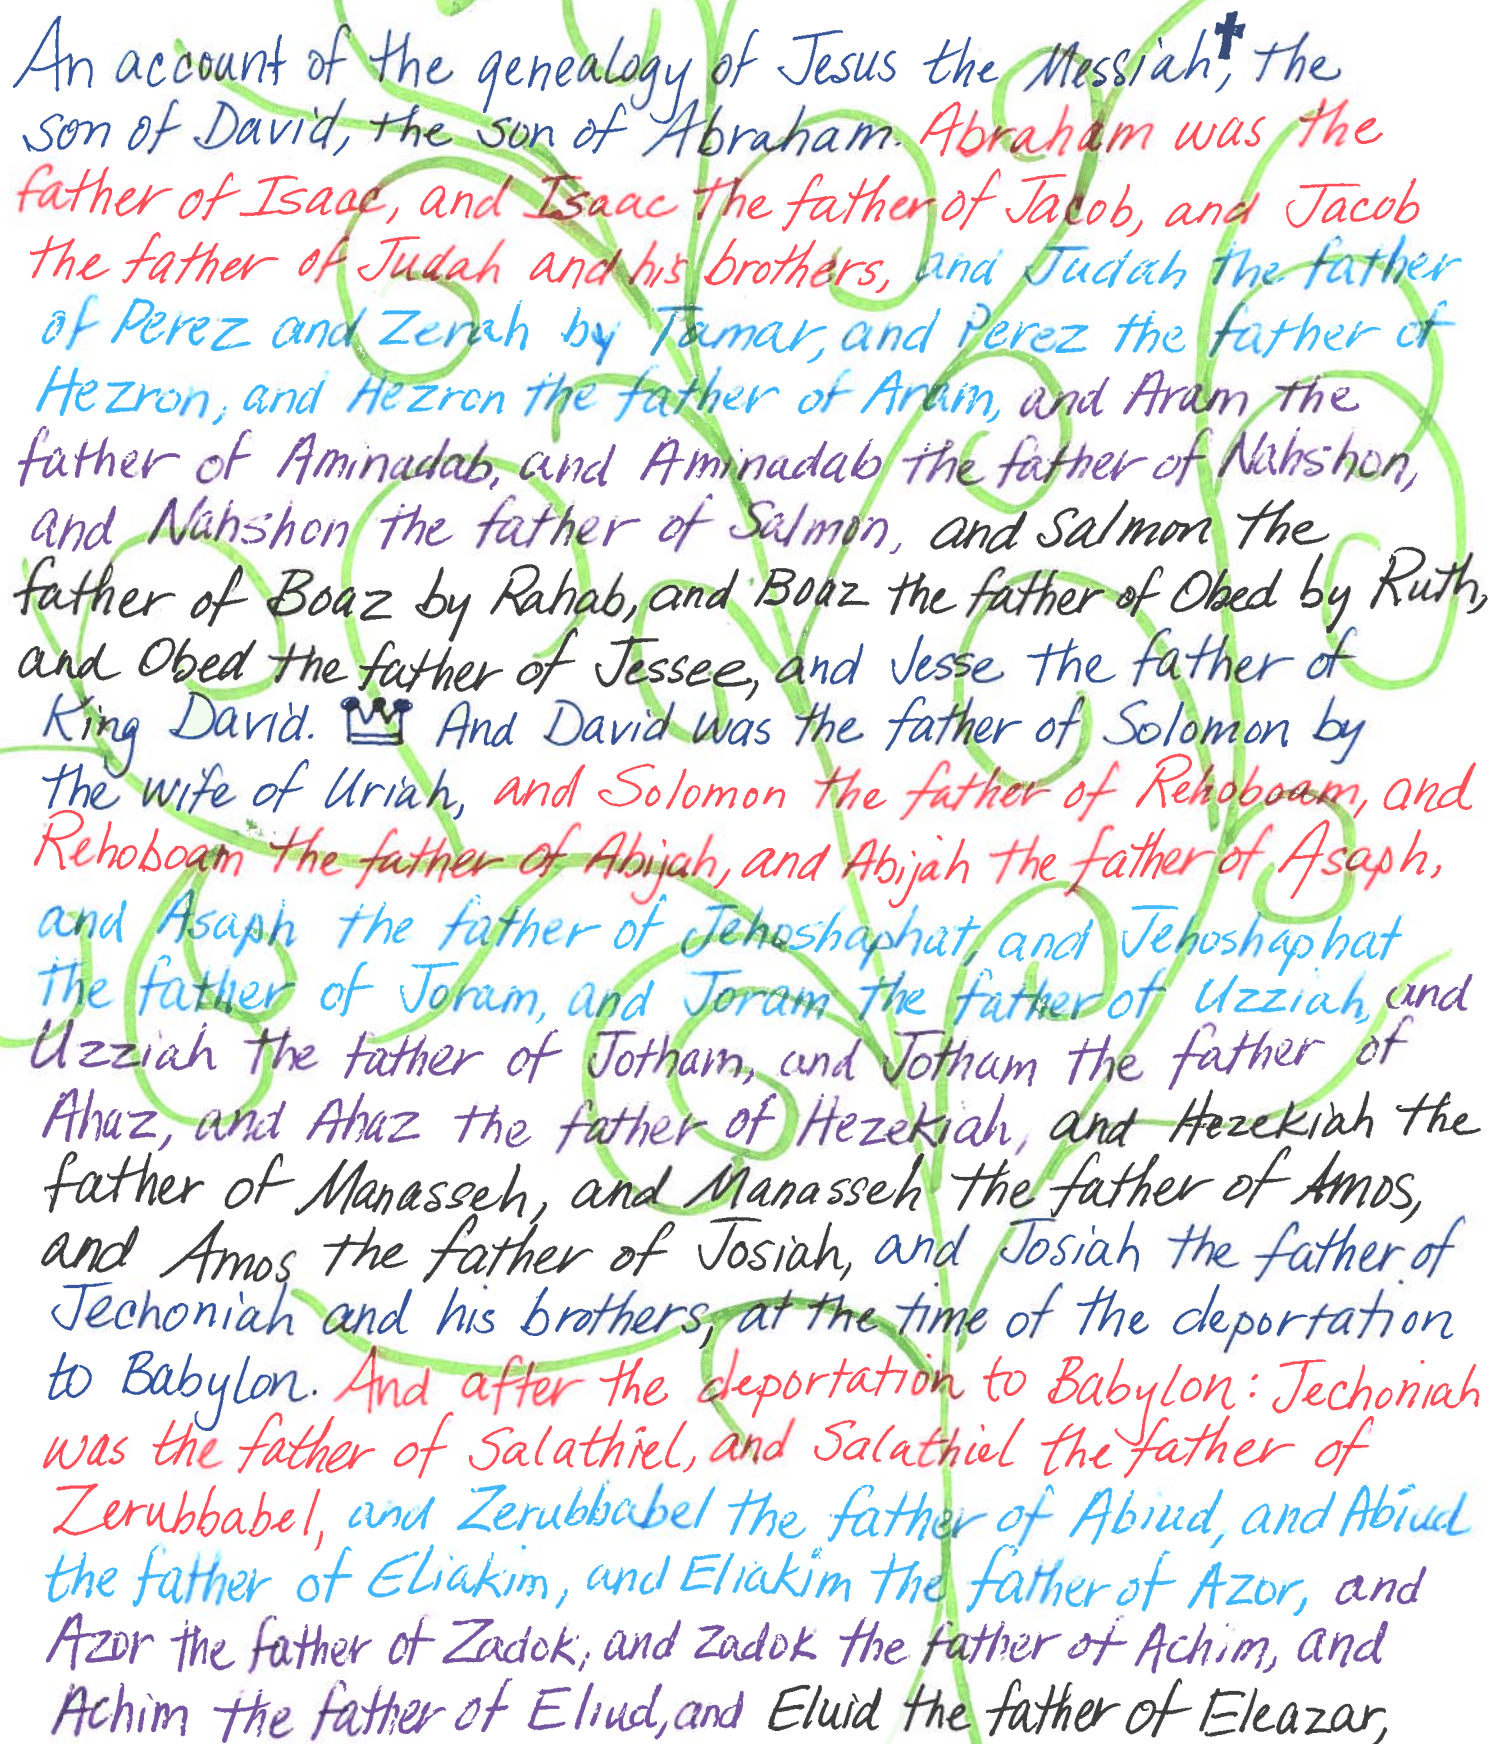 An account of the genealogy of Jesus the Messiah, the
son of David, the son of Abraham. Abraham was the
father of Isaac, and Isaac the father of Jacob, and Jacob
the father of Judah and his brothers, and Judah the father
of Perez and Zerah by Tamar, and Perez the father of
Hezron, and Hezron the father of Aram, and Aram the
father of Aminadab, and Aminadab the father of Nahshon,
and Nahshon the father of Salmon, and Salmon the
father of Boaz by Rahab, and Boaz the father of Obed by Ruth,
and Obed the father of Jessee, and Jesse the father of
King David. And David was the father of Solomon by
the wife of Uriah, and Solomon the father of Rehoboam, and
Rehoboam the father of Abijah, and Abijah the father of Asaph,
and Asaph the father of Jehoshaphat, and Jehoshaphat
the father of Joram, and Joram the father of Uzziah, and
Uzziah the father of Jotham, and Jotham the father of
Ahaz, and Ahaz the father of Hezekiah, and Hezekiah the
father of Manasseh, and Manasseh the father of Amos,
and Amos the father of Josiah, and Josiah the father of
Jechoniah and his brothers, at the time of the deportation
to Babylon. And after the deportation to Babylon: Jechoniah
was the father of Salathiel, and Salathiel the father of
Zerubbabel, and Zerubbabel the father of Abiud, and Abiud
the father of Eliakim, and Eliakim the father of Azor, and
Azor the father of Zadok, and Zadok the father of Achim, and
Achim the father of Eliud, and Eluid the father of Eleazar,